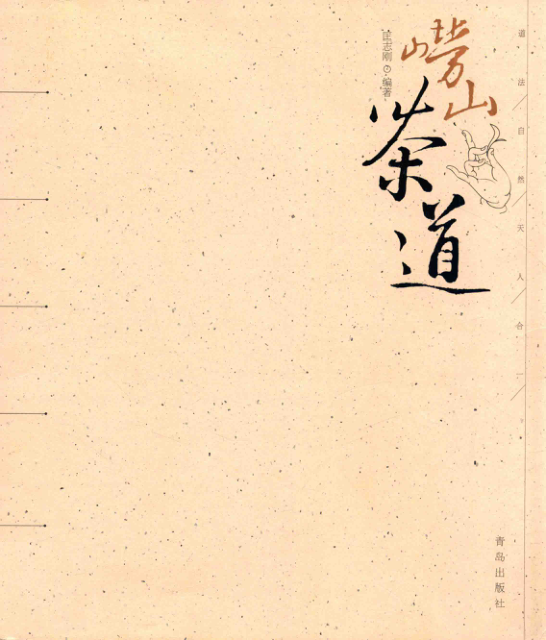 道法/自然/天人/合一/
崂山
茶道
匡志刚⊙编著
青岛出版社